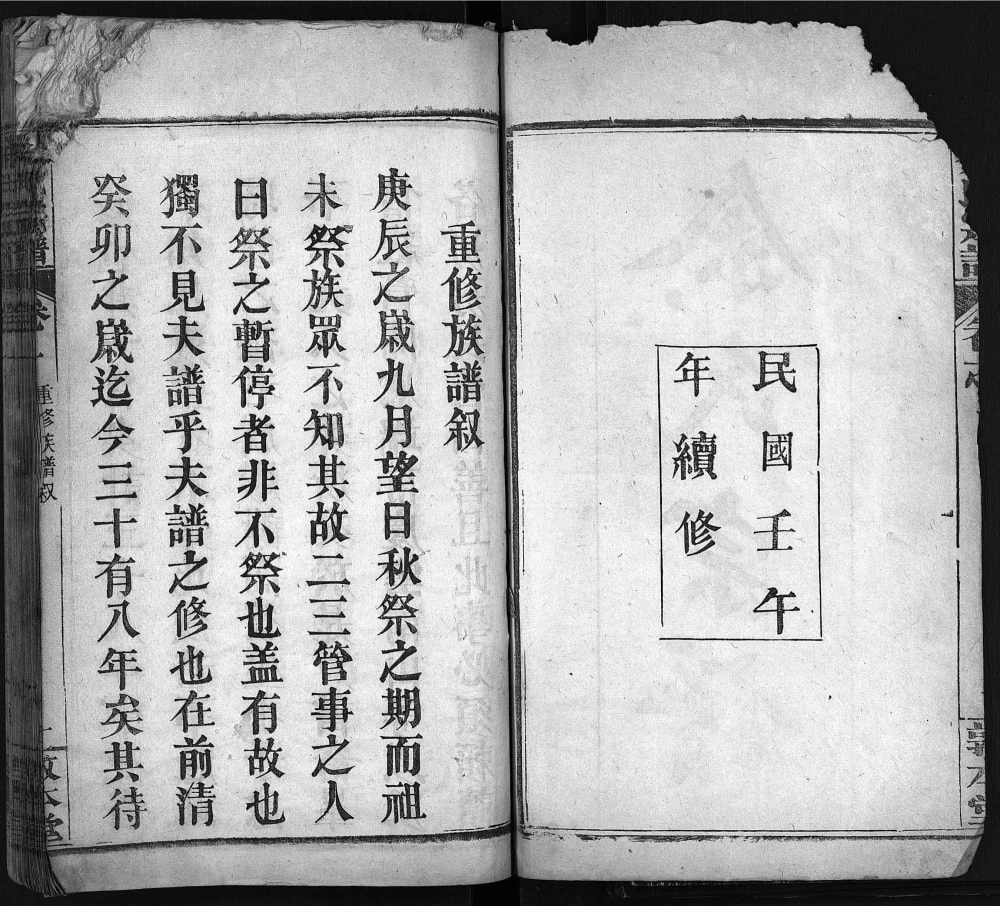 民國壬午
年續修
重修族譜叙
庚辰之歲九月望日秋祭之期而祖
未祭族眾不知其故二三管事之人
曰祭之暫停者非不祭也盖有故也
獨不見夫譜乎夫譜之修也在前清
癸卯之歲迄今三十有八年矣其待
譜
卷一
重修族譜叙
敦本堂